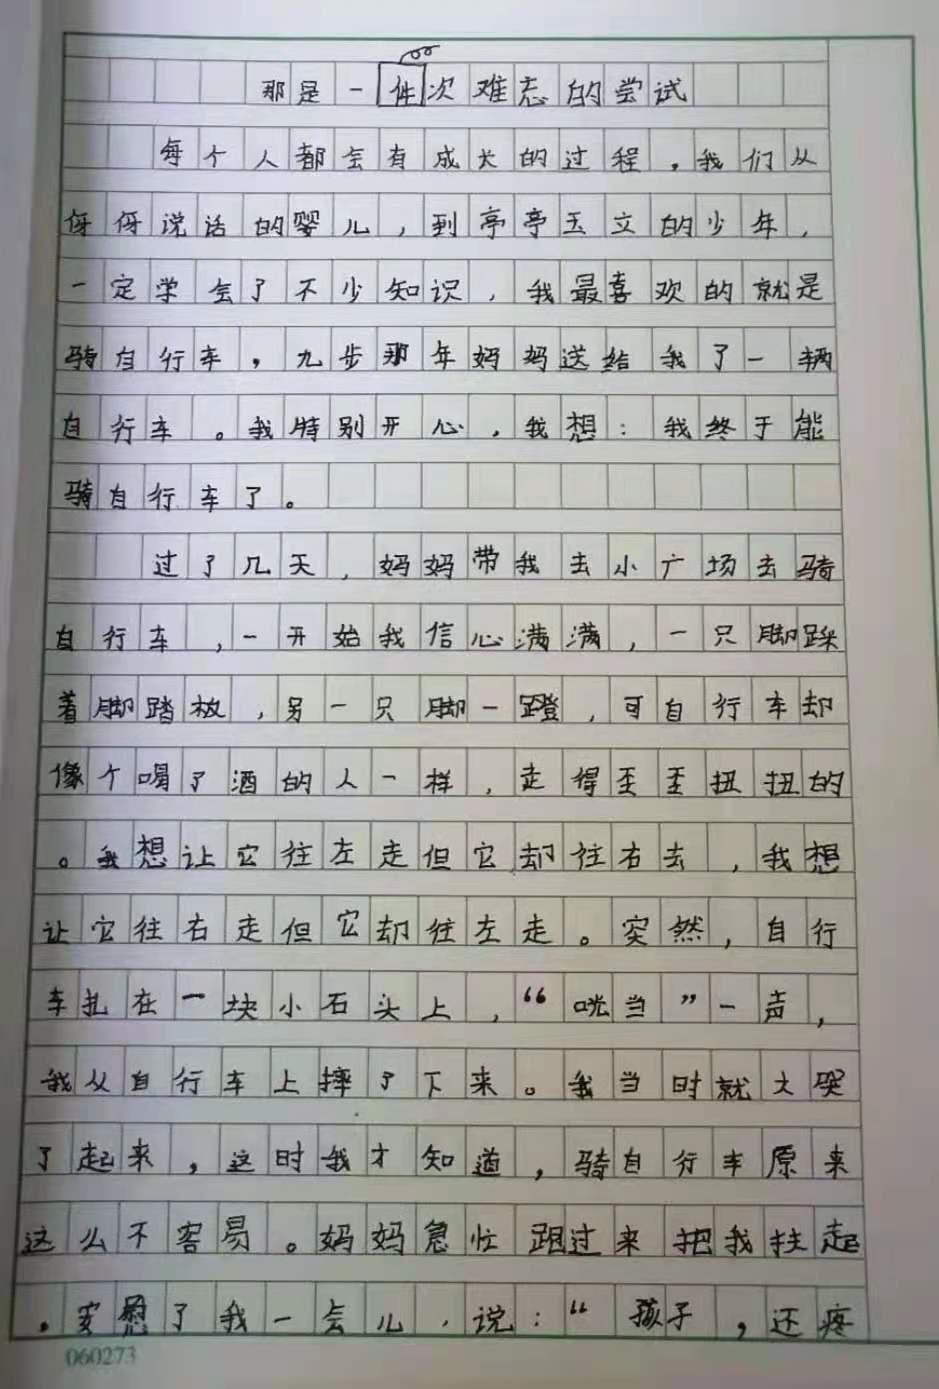 那是一件次难忘的尝试
每个人都会有成长的过程，我们从
伢伢说话的婴儿，到亭亭玉立的少年，
一定学会了不少知识，我最喜欢的就是
骑自行车，九步那年妈妈送给我了一辆
自行车。我特别开心，我想：我终于能
骑自行车了。
过了几天，妈妈带我去小广场去骑
自行车，一开始我信心满满，一只脚踩
着脚踏板，另一只脚一蹬，可自行车却
像个喝了酒的人一样，走得歪歪扭扭的
。我想让它往左走但它却往右去，我想
让它往右走但它却往左走。突然，自行
车扎在一块小石头上，“咣当”一声，
我从自行车上摔了下来。我当时就大哭
了起来，这时我才知道，骑自行车原来
这么不容易。妈妈急忙跑过来把我扶起
。安慰了我一会儿，说：“孩子，还疼
060273